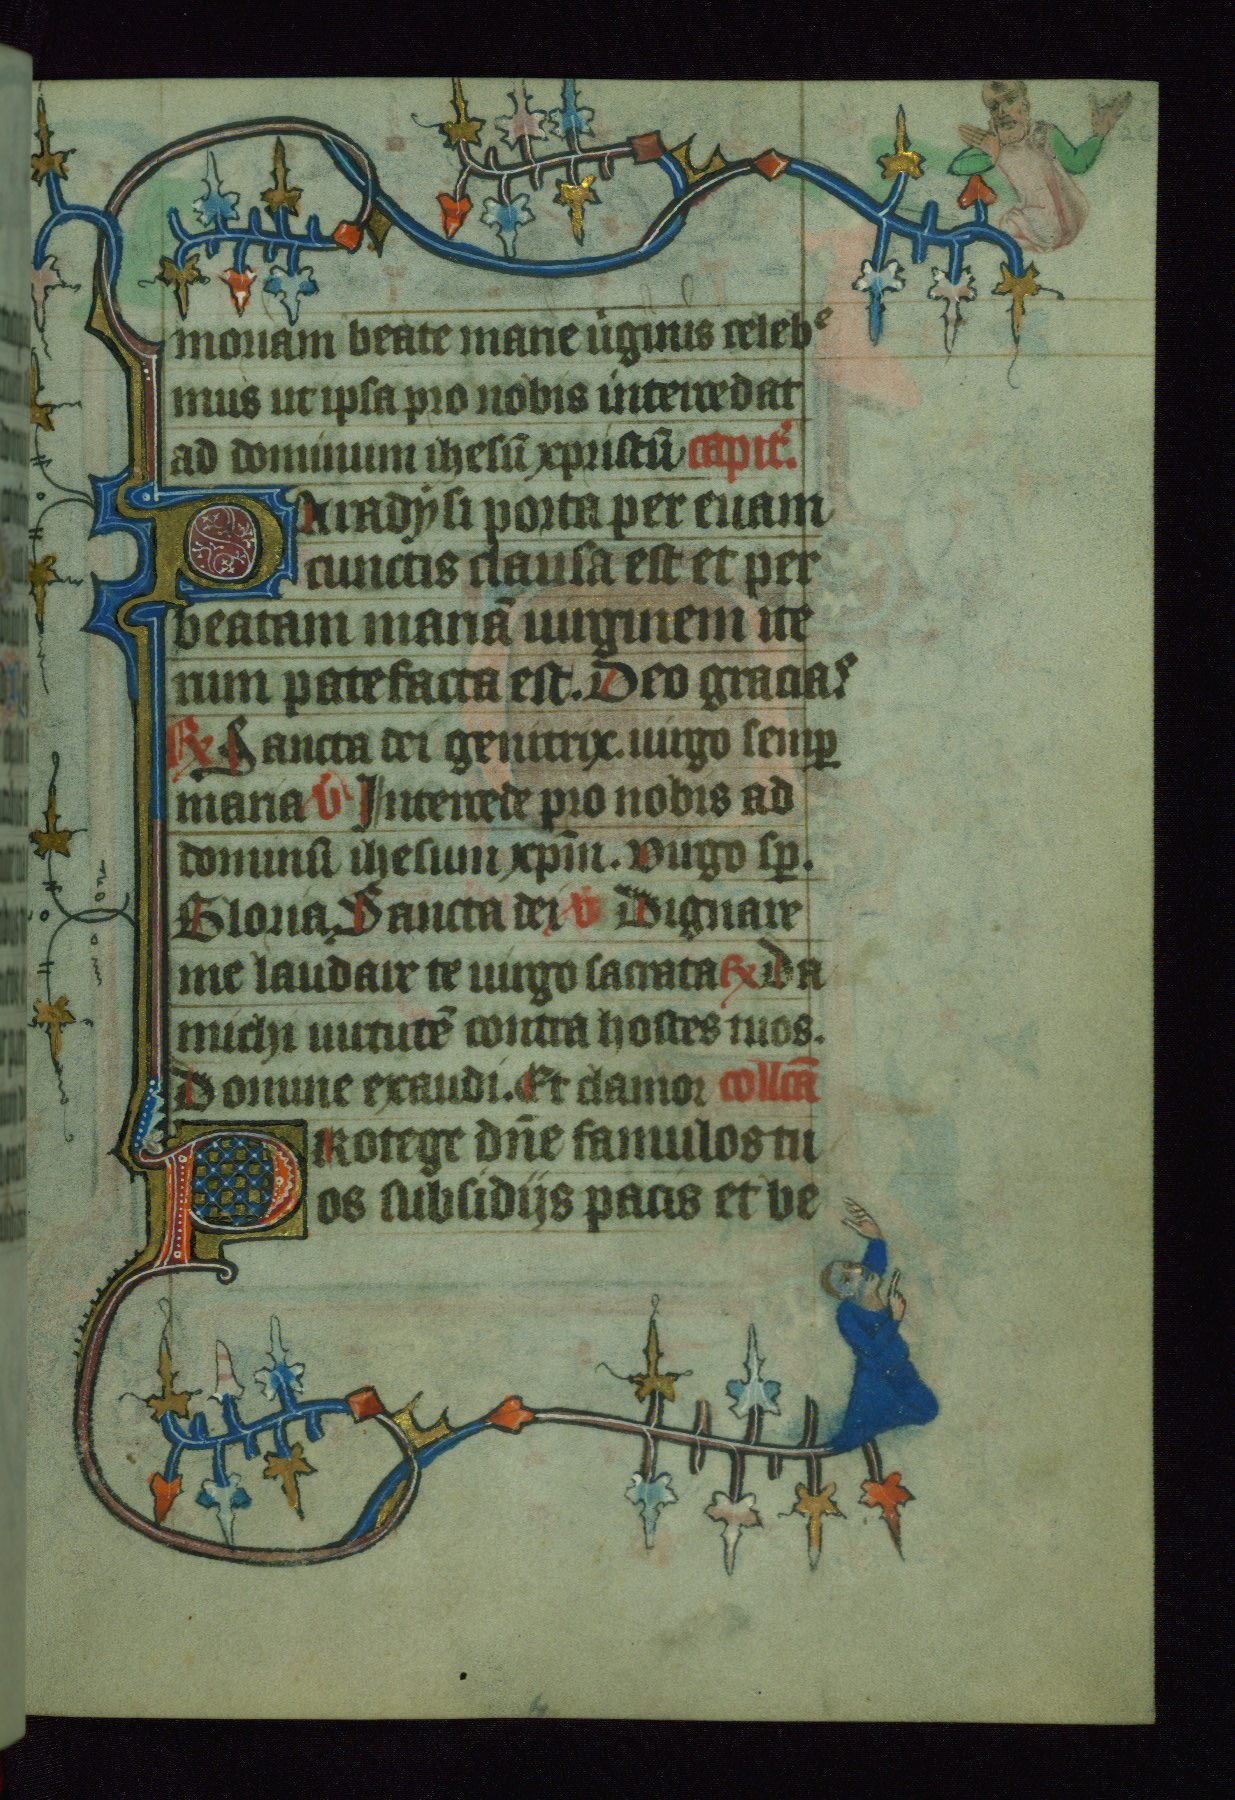 moriam beate marie u͛ginis celebᵉ
mus ut ipsa pro nobis intercedat
ad dominum ihesū xpristū capit᷎.
Paradysi porta per euam
cunctis clausa est et per
beatam mariā uirginem ite
rum patefacta est. Deo gracias
℟ Sancta dei genitrix uirgo semꝑ
maria ℣ Intercede pro nobis ad
dominū ihesum xp̄m. Virgo sꝑ.
Gloria. Sancta dei ℣ Dignare
me laudare te uirgo sacrata ℟ Da
michi uirtutē contra hostes tuos.
Domine exaudi. Et clamor collcā
Protege dn̄e famulos tu
os subsidijs pacis et be